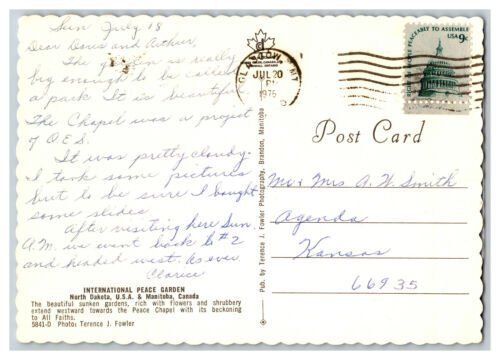 Sun July 18
Dear Doris and Arthur,
The garden is really
big enough to be called
a park. It is beautiful.
The Chapel was a project
of O.E.S.
It was pretty cloudy.
I took some pictures
but to be sure I bought
some slides.
After visiting here Sun.
A.M. we went back to #2
and headed west. As ever
Clarice
INTERNATIONAL PEACE GARDEN
North Dakota, U.S.A. & Manitoba, Canada
The beautiful sunken gardens, rich with flowers and shrubbery
extend westward towards the Peace Chapel with its beckoning
to All Faiths.
5841-D Photo: Terence J. Fowler
Pub. by Terence J. Fowler Photography, Brandon, Manitoba
GLASGOW, MT
JUL 20
1976
PEACEABLY TO ASSEMBLE
USA 9c
Post Card
Mr & Mrs A. W. Smith
Agenda
Kansas
66935